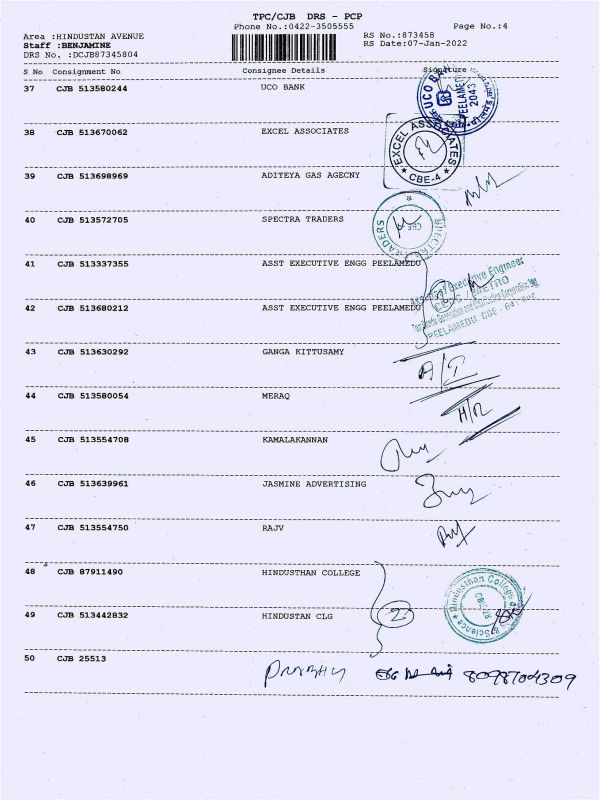 TPC/CJB DRS - PCP
Phone No.:0422-3505555 Page No.:4
Area :HINDUSTAN AVENUE RS No.:873458
Staff :BENJAMINE RS Date:07-Jan-2022
DRS No. :DCJB87345804
S No Consignment No Consignee Details Signature
37 CJB 513580244 UCO BANK
UCO BANK
PEELAMEDU
2043
38 CJB 513670062 EXCEL ASSOCIATES
EXCEL ASSOCIATES
CBE-4
39 CJB 513698969 ADITEYA GAS AGECNY
40 CJB 513572705 SPECTRA TRADERS
SPECTRA TRADERS
41 CJB 513337355 ASST EXECUTIVE ENGG PEELAMEDU
Assistant Executive Engineer
METRO
PEELAMEDU, CBE - 641 004
2
42 CJB 513680212 ASST EXECUTIVE ENGG PEELAMEDU
43 CJB 513630292 GANGA KITTUSAMY
A/T
44 CJB 513580054 MERAQ
H/R
45 CJB 513554708 KAMALAKANNAN
46 CJB 513639961 JASMINE ADVERTISING
47 CJB 513554750 RAJV
48 CJB 87911490 HINDUSTHAN COLLEGE
Hindusthan College of
Science
49 CJB 513442832 HINDUSTAN CLG
2
50 CJB 25513
PRABHU 8098704309